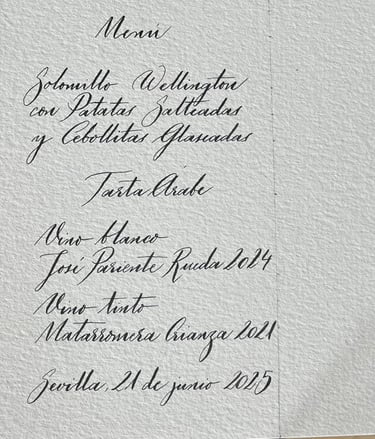 Menú
Solomillo Wellington
con Patatas Salteadas
y Cebollitas Glaseadas
Tarta Árabe
Vino blanco
José Pariente Rueda 2024
Vino tinto
Matarromera Crianza 2021
Sevilla, 21 de junio 2025